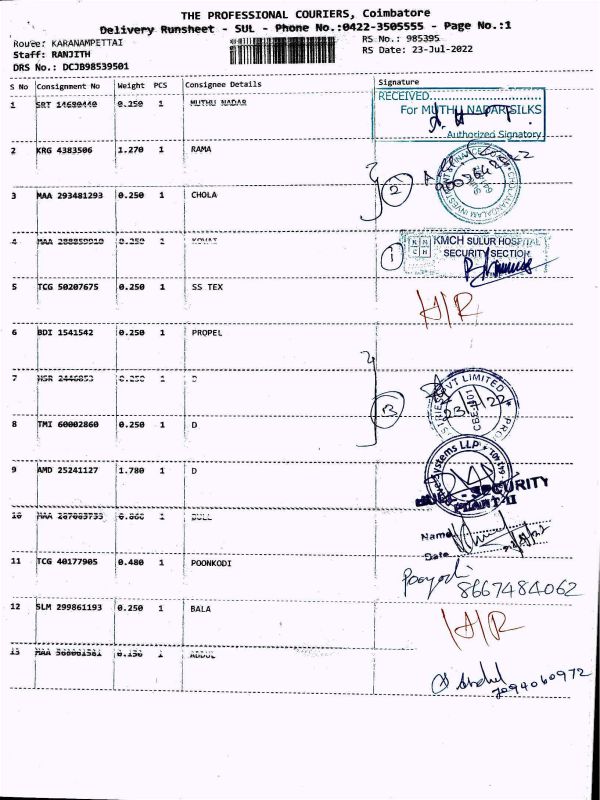 THE PROFESSIONAL COURIERS, Coimbatore
Delivery Runsheet - SUL - Phone No.:0422-3505555 - Page No.:1
Route: KARANAMPETTAI RS No.: 985395
Staff: RANJITH RS Date: 23-Jul-2022
DRS No.: DCJB98539501
S No Consignment No Weight PCS Consignee Details Signature
1 SRT 14690440 0.250 1 MUTHU NADAR
RECEIVED
For MUTHU NADAR SILKS
Authorized Signatory
2 KRG 4383506 1.270 1 RAMA
2
3 MAA 293481293 0.250 1 CHOLA
4 MAA 288859910 0.250 1 KOVAI
1
KMCH SULUR HOSPITAL
SECURITY SECTION
5 TCG 50207675 0.250 1 SS TEX
H/R
6 BDI 1541542 0.250 1 PROPEL
7 NSR 2446853 0.250 1 D
VT LIMITED
8 TMI 60002860 0.250 1 D
Systems LLP
9 AMD 25241127 1.780 1 D
SECURITY
PLANT-II
10 MAA 287083733 1 BULL
Name
Date
11 TCG 40177905 0.480 1 POONKODI
8667484062
12 SLM 299861193 0.250 1 BALA
H/R
13 MAA 568061581 0.150 1 ABDUL
Abdul
7094060972